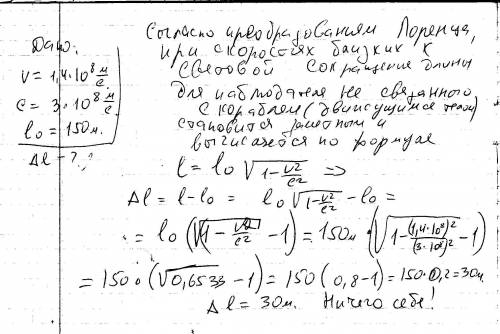 Дано:
V = 1,4·10⁸ м/с
c = 3·10⁸ м/с
l₀ = 150 м.
Δl – ?
Согласно преобразованиям Лоренца,
при скоростях близких к
световой сокращение длины
для наблюдателя не связанного
с кораблем (движущимся телом)
становится заметным и
вычисляется по формуле
l = l₀ √(1 - v²/c²) =>
Δl = l - l₀ = l₀ √(1 - v²/c²) - l₀ =
= l₀ (√(1 - v²/c²) - 1) = 150м · (√(1 - (1,4·10⁸)²/(3·10⁸)²) - 1)
= 150 · (√0,6533 - 1) = 150 (0,8-1) = 150·0,2 = 30м.
Δl = 30м. Ничего себе!